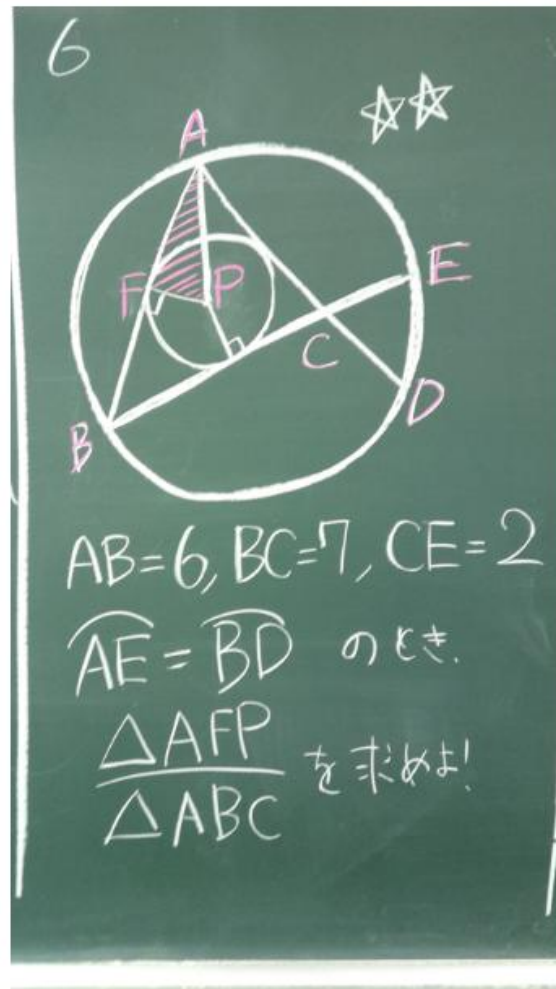 6
☆☆
A
F
P
E
C
D
B
AB=6, BC=7, CE=2
⌒AE = ⌒BD のとき.
△AFP
△ABC を求めよ!